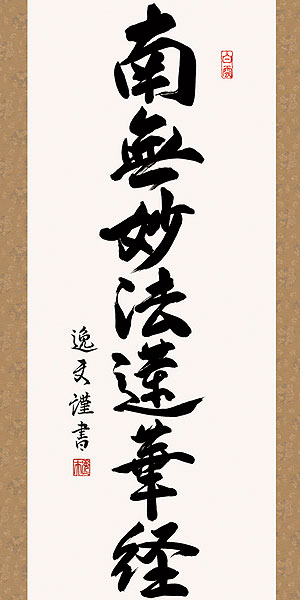 南無妙法蓮華経
逸文謹書